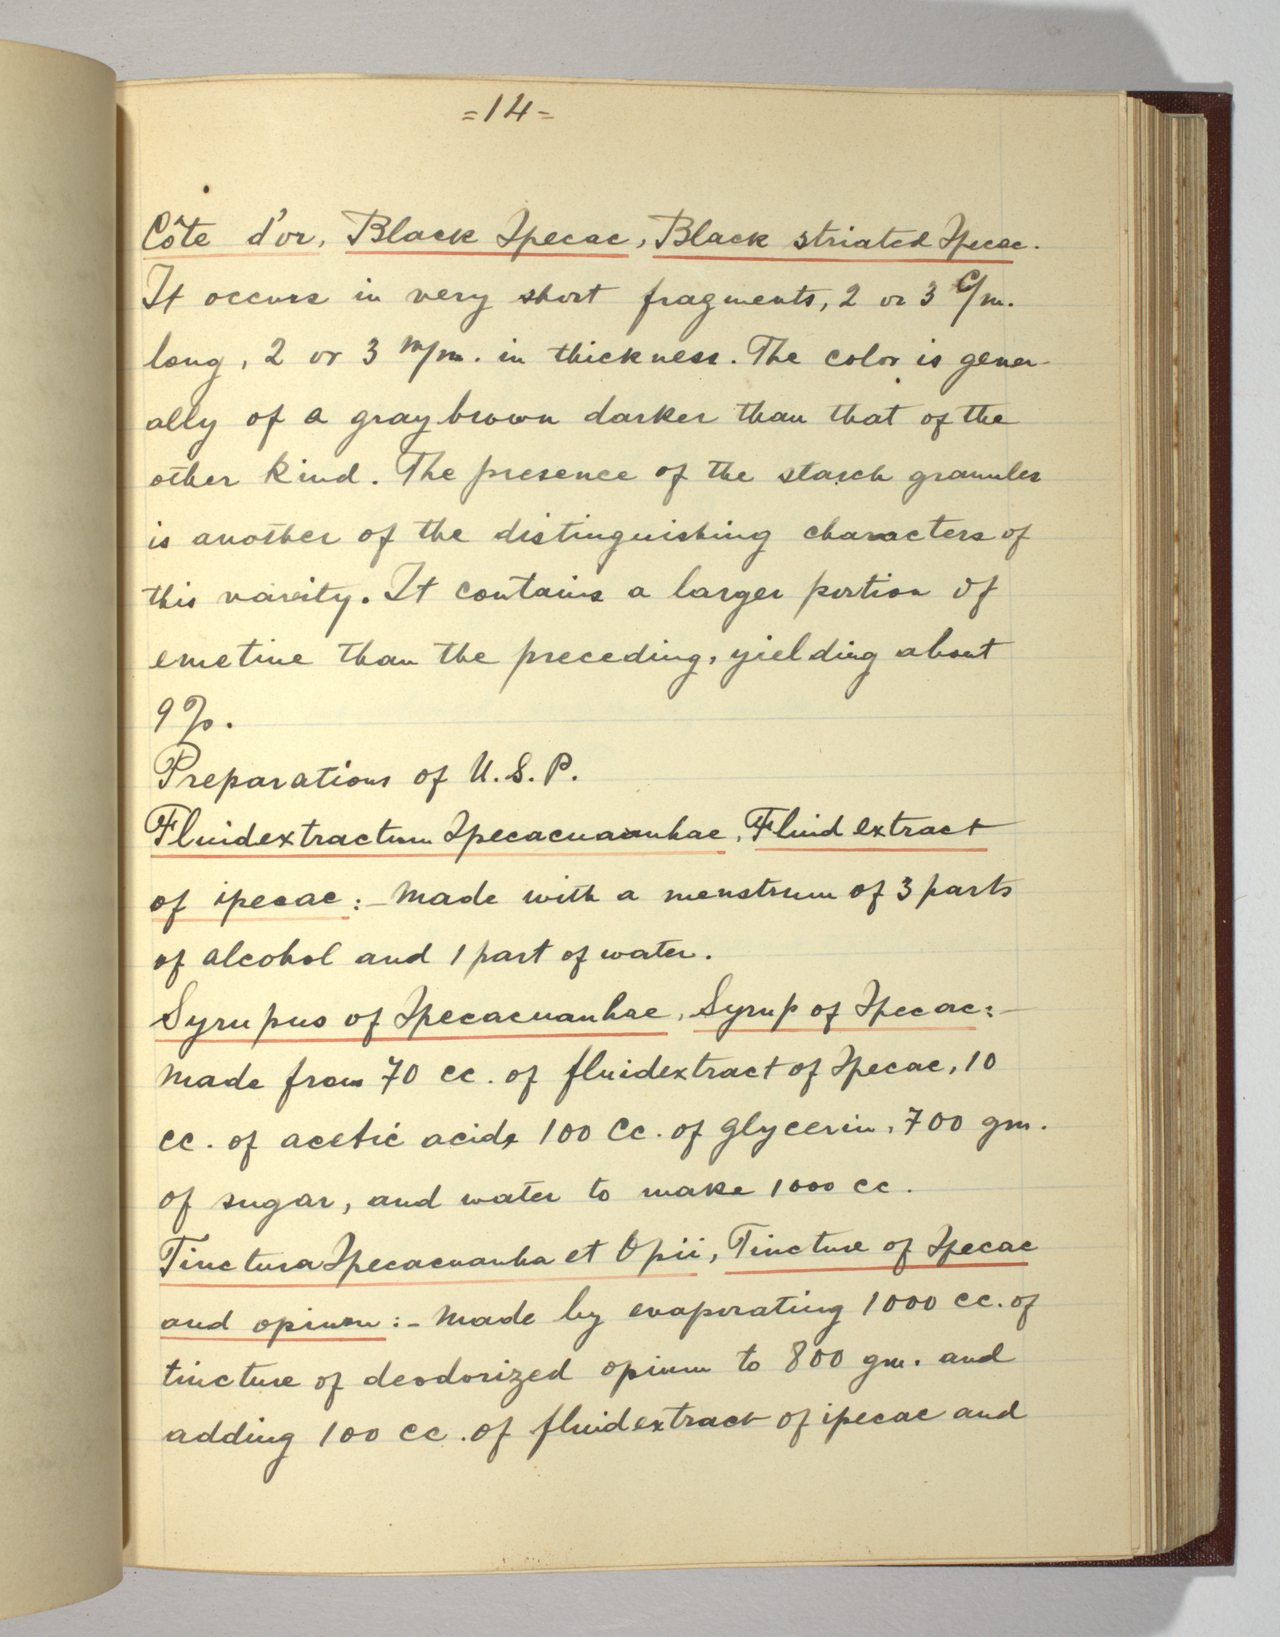 =14=
Côte d'or, Black Ipecac, Black striated Ipecac.
It occurs in very short fragments, 2 or 3 c/m.
long, 2 or 3 m/m. in thickness. The color is gener-
ally of a gray brown darker than that of the
other kind. The presence of the starch granules
is another of the distinguishing characters of
this varsity. It contains a larger portion of
emetine than the preceding, yielding about
9%.
Preparations of U.S.P.
Fluidextractum Ipecacuaanhae, Fluid extract
of ipecac:- Made with a menstrum of 3 parts
of alcohol and 1 part of water.
Syrupus of Ipecacuanhae, Syrup of Ipecac:-
Made from 70 cc. of fluidextract of Ipecac, 10
cc. of acetic acid, 100 Cc. of glycerin, 700 gm.
of sugar, and water to make 1000 cc.
Tinctura Ipecacuanha et Opii, Tincture of Ipecac
and opium:- Made by evaporating 1000 cc. of
tincture of deodorized opium to 800 gm. and
adding 100 cc. of fluidextract of ipecac and